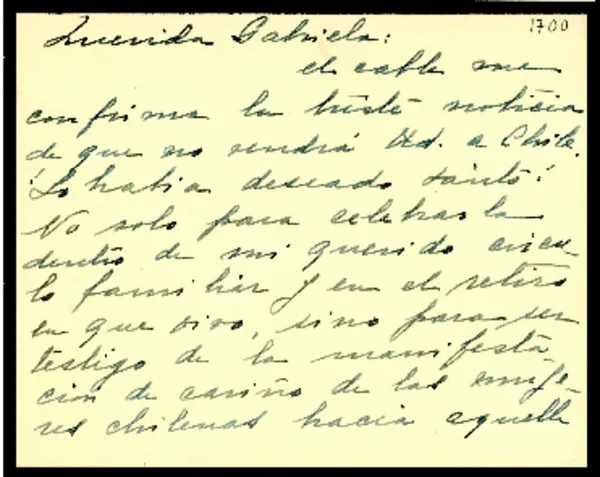 1700
Querida Gabriela:
el cable me
confirma la triste noticia
de que no vendrá Ud. a Chile.
¡Lo habia deseado tanto!
No solo para celebrarla
dentro de mi querido circu
lo familiar y en el retiro
en que vivo, sino para ser
testigo de la manifesta_
cion de cariño de las muje_
res chilenas hacia aquella